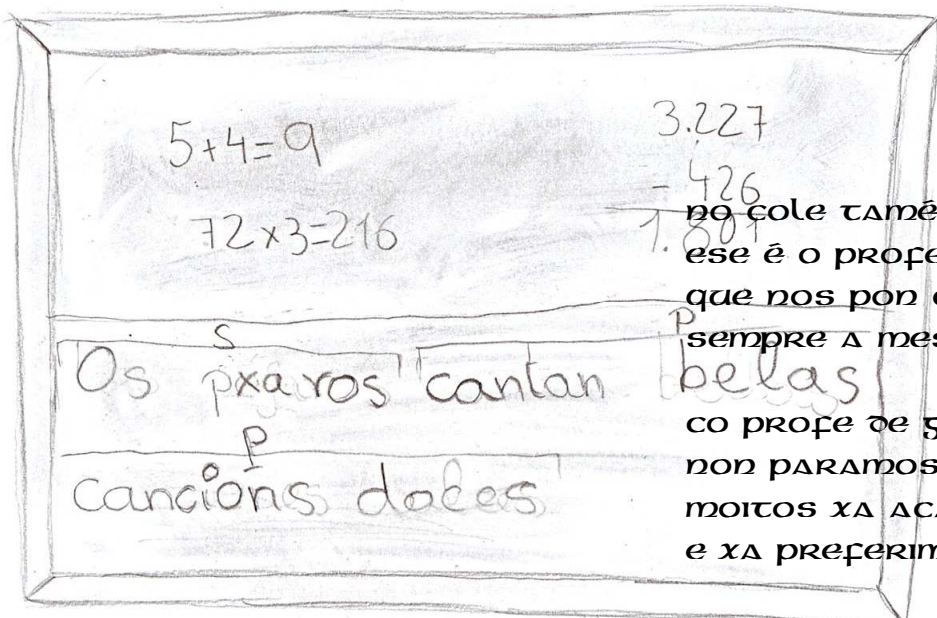 5+4=9
72x3=216
3.227
- 426
1.801
S P
"Os pxaros" "cantan belas
P
cancións doces"
no cole tamé
ese é o profe
que nos pon
sempre a mes
co profe de g
non paramos
moitos xa aca
e xa preferim